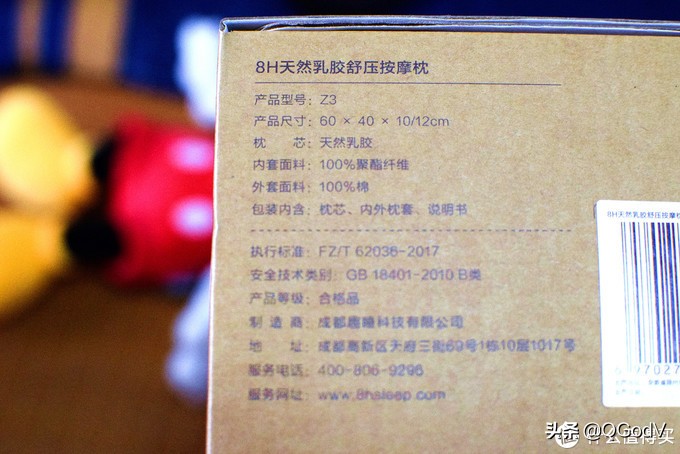 8H天然乳胶舒压按摩枕
产品型号: Z3
产品尺寸: 60 × 40 × 10/12cm
枕 芯: 天然乳胶
内套面料: 100%聚酯纤维
外套面料: 100%棉
包装内含: 枕芯、内外枕套、说明书
执行标准: FZ/T 62036-2017
安全技术类别: GB 18401-2010 B类
产品等级: 合格品
制 造 商: 成都趣睡科技有限公司
地 址: 成都高新区天府三街69号1栋10层1017号
服务电话: 400-806-9296
服务网址: www.8hsleep.com
8H天然乳胶舒压按摩枕
头条 @QGodV
什么值得买